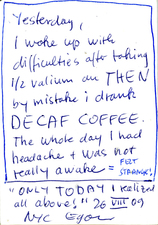 Yesterday,
I woke up with
difficulties after taking
1/2 valium an THEN
by mistake i drank
DECAF COFFEE.
The whole day I had
headache + was not
really awake = FELT
STRANGE!
"ONLY TODAY I realized
all above" 26 VIII 09
NYC